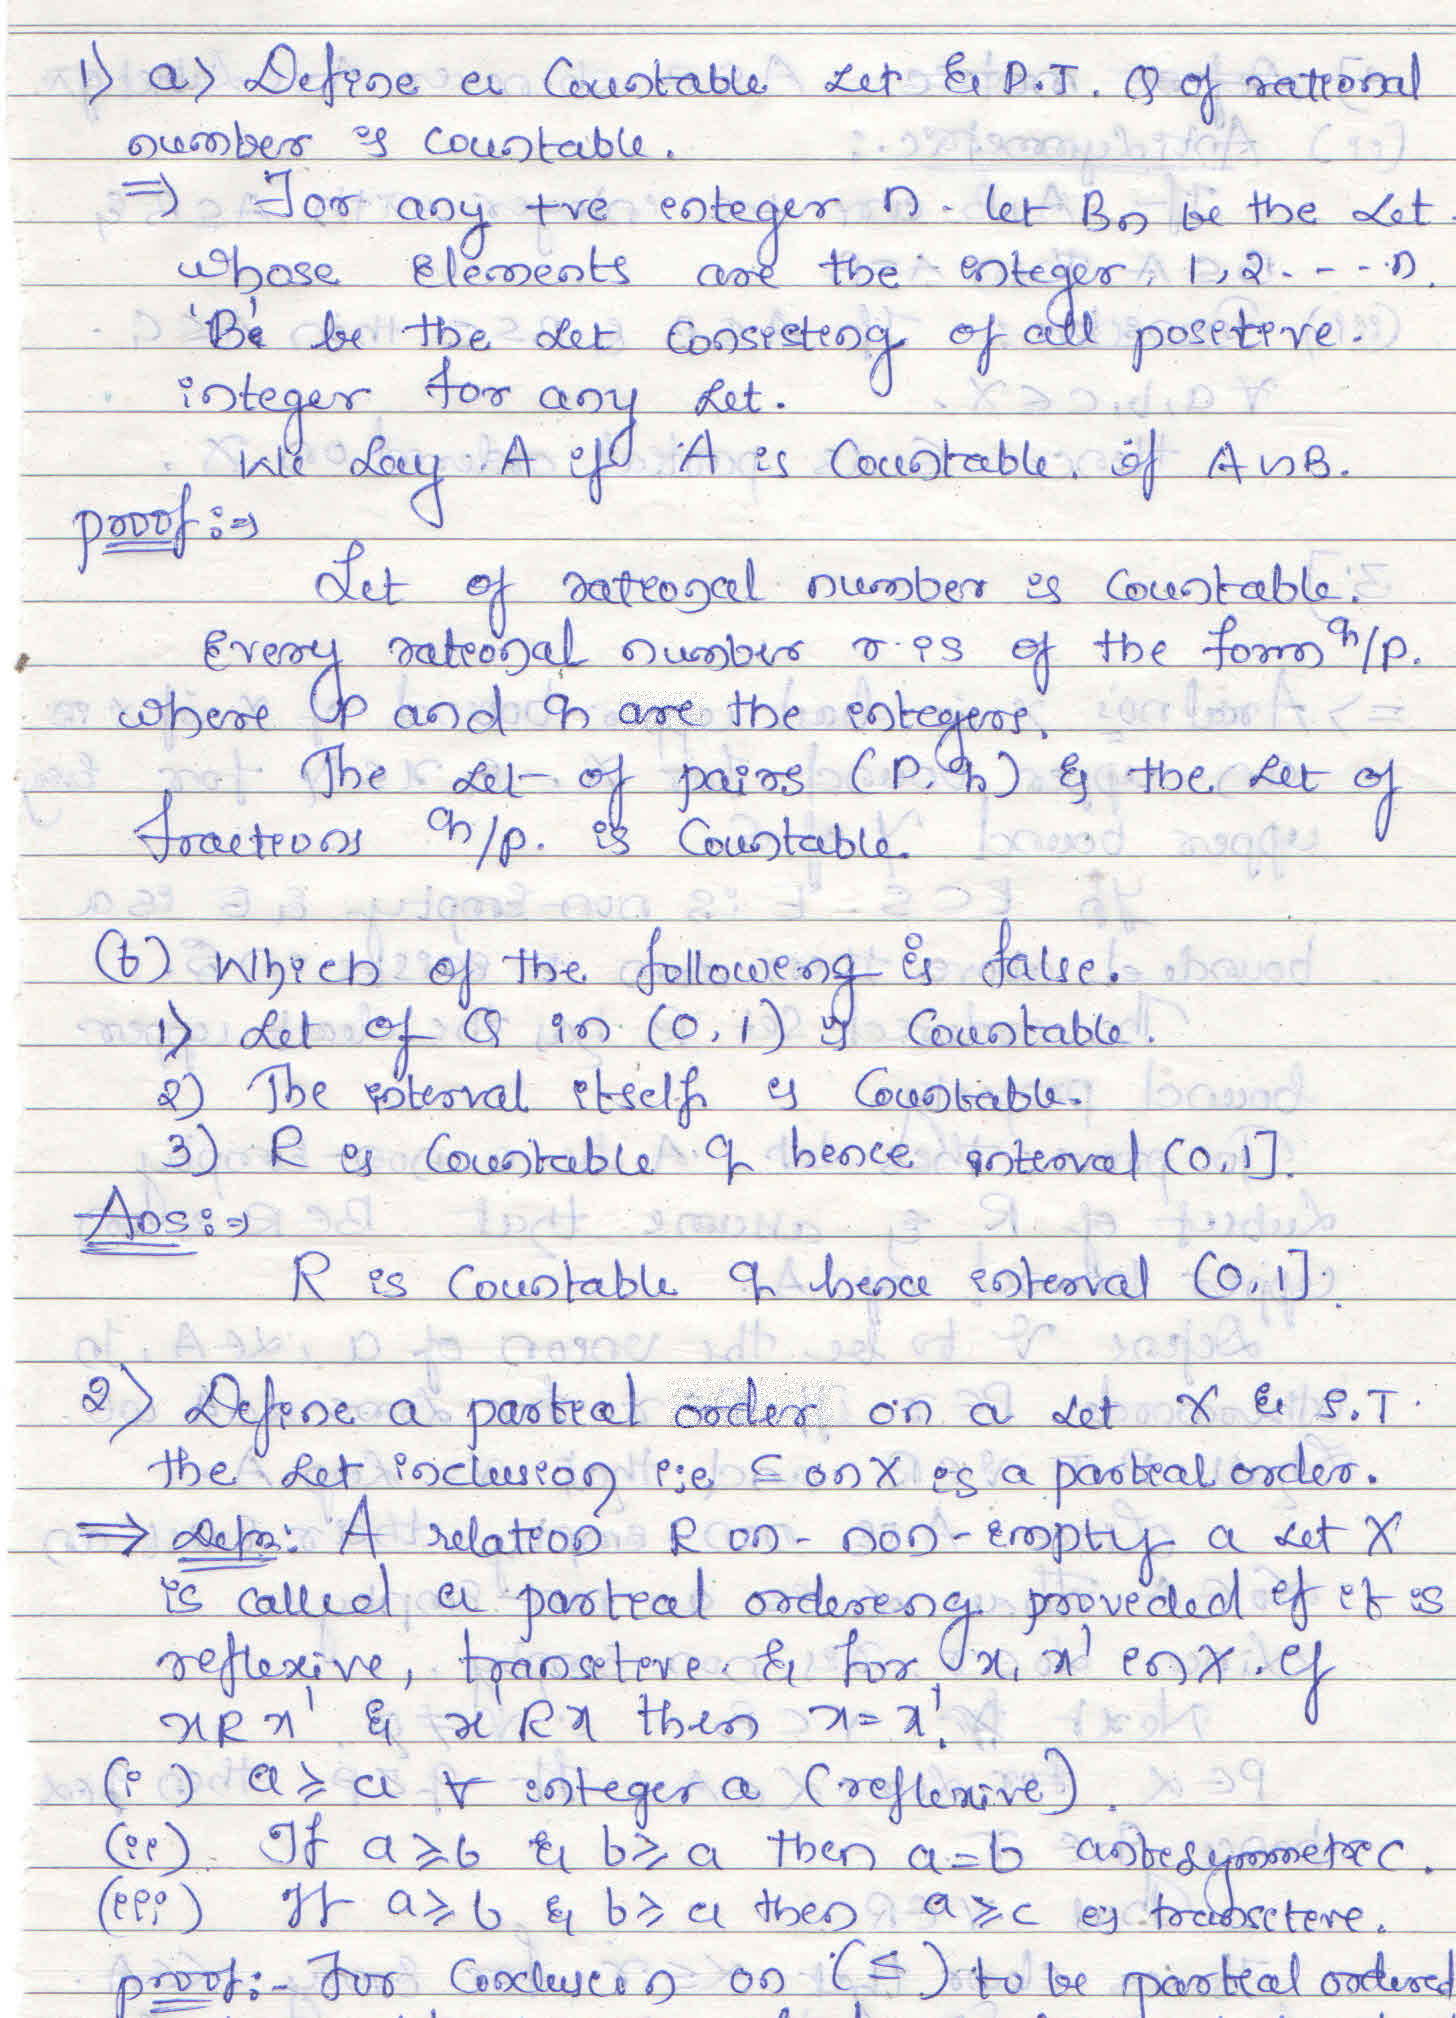 1) a) Define a Countable set & P.T. Q of rational
number is countable.
⇒ For any +ve integer n. let Bn be the set
whose Elements are the integer, 1, 2 - - - n.
'B' be the set Consisting of all positive.
integer for any set.
We say A if A is Countable. if A∩B.
proof:⇒
Set of rational number is Countable.
Every rational number r. is of the form q/p.
where p and q are the integers.
The set of pairs (P, q) & the set of
fractions q/p. is Countable.
(b) Which of the following is false.
1) Set of Q in (0, 1) is Countable.
2) The interval itself is Countable.
3) R is Countable & hence interval (0, 1].
Ans:⇒
R is Countable & hence interval (0, 1].
2) Define a partial order on a set X & S.T.
the set inclusion i;e ⊆ on X is a partial order.
⇒ Defn: A relation R on - non-empty a set X
is called a partial ordering provided if it is
reflexive, transitive. & for x, x' in X. if
xRx' & x'Rx then x=x'.
(i) a ⩾ a ∀ integer a (reflexive).
(ii) If a ⩾ b & b ⩾ a then a = b antisymmetric.
(iii) If a ⩾ b & b ⩾ a then a ⩾ c is transitive.
proof:- For Conclusion on (⊆) to be partial ordered